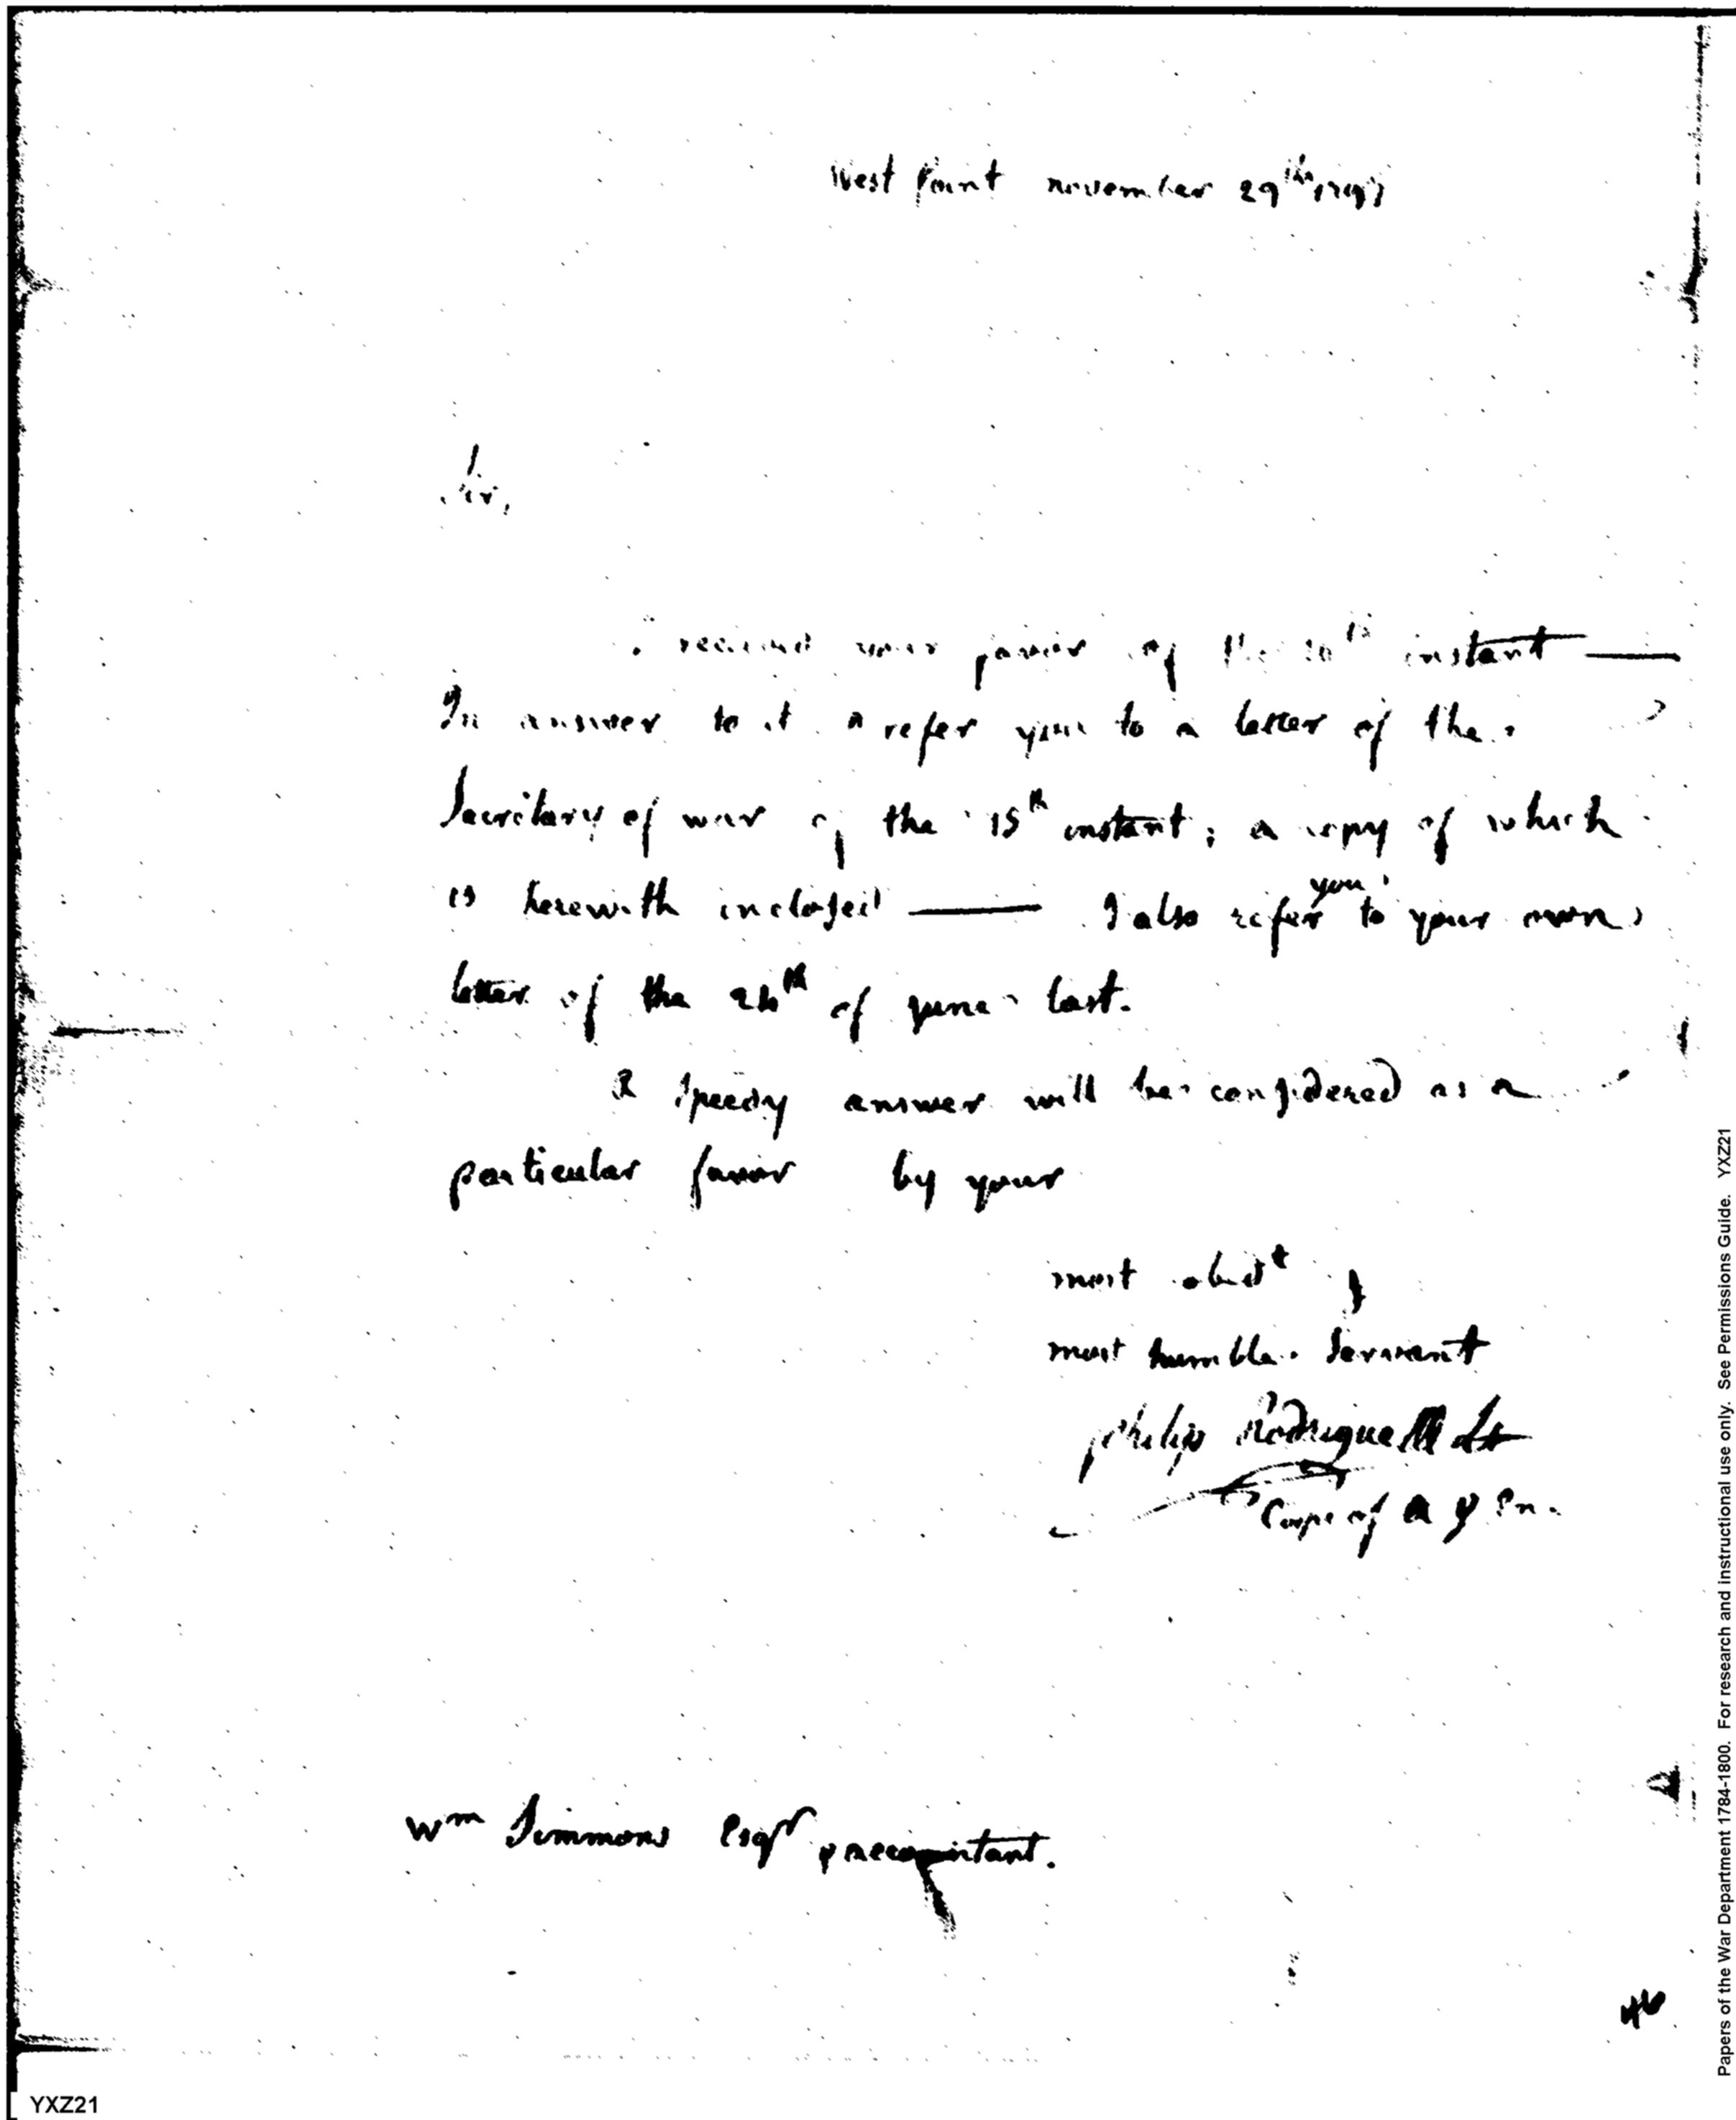 West Point november 29th 1797
Sir,
I received your favor of the instant —
In answer to it refer you to a letter of the
Secretary of war of the 15th instant; a copy of which
is herewith inclosed — I also refer you to your own
letter of the of june last.
A speedy answer will be considered as a
particular favor by your
most obdt &
most humble Servant
philip Rodrigue Lt
Corps of A & En.
Wm Simmons Esqr accomptant.
46
YXZ21
Papers of the War Department 1784-1800. For research and instructional use only. See Permissions Guide. YXZ21